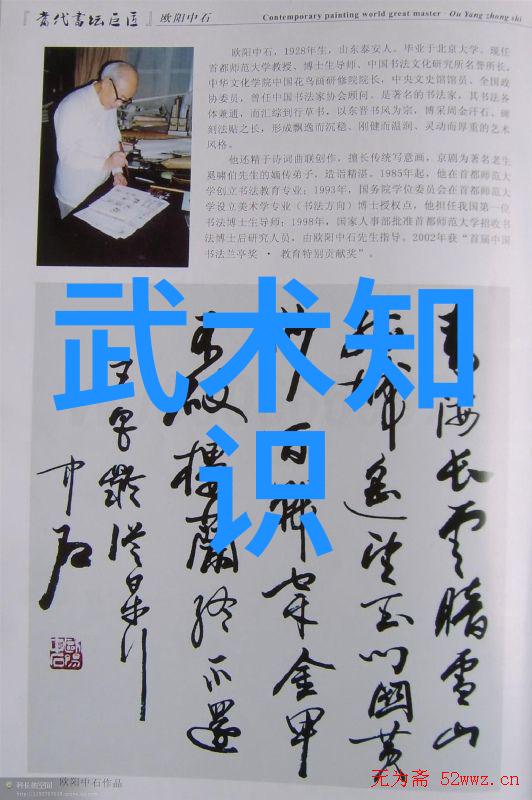 『当代书坛巨匠』欧阳中石
Contemporary painting world great master · Ou Yang zhong shi
欧阳中石，1928年生，山东泰安人。毕业于北京大学。现任
首都师范大学教授、博士生导师、中国书法文化研究所名誉所长，
中华文化学院中国花鸟画研修院院长，中央文史馆馆员，全国政
协委员，曾任中国书法家协会顾问。是著名的书法家，其书法各
体兼通，而汇综到行草书，以东晋书风为宗，博采周金汗石、碑
刻法贴之长，形成飘逸而沉稳、刚健而温润、灵动而厚重的艺术
风格。
他还精于诗词曲联创作，擅长传统写意画，京剧为著名老生
奚啸伯先生的嫡传弟子，造诣精湛。1985年起，他在首都师范大
学创立书法教育专业；1993年，国务院学位委员会在首都师范大
学设立美术学专业（书法方向）博士授权点，他担任我国第一位
书法博士生导师；1998年，国家人事部批准首都师范大学招收书
法博士后研究人员，由欧阳中石先生指导。2002年获“首届中国
书法兰亭奖 · 教育特别贡献奖”。
武术知
识
青海长云暗雪山
孤城遥望玉门关黄
沙百战穿金甲
不破楼兰终不还
王昌龄从军行
中石
欧阳中石作品
无为斋 52wwz.cn